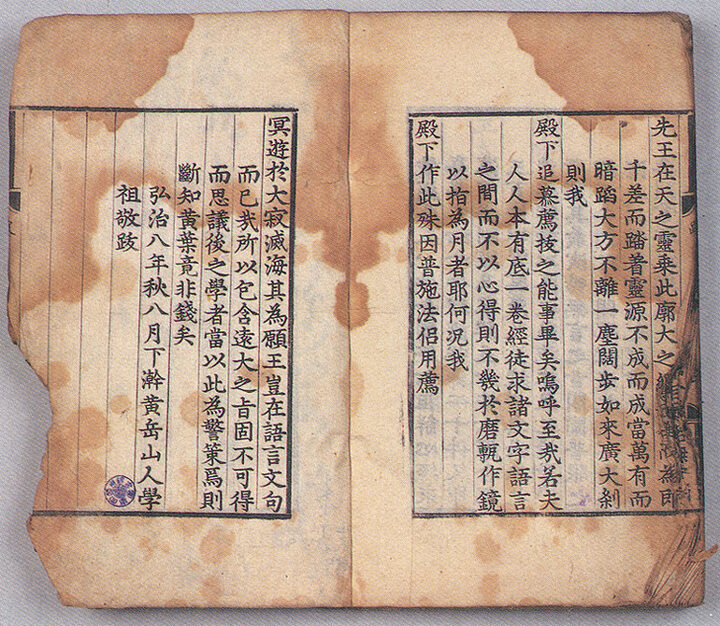 先王在天之靈乘此廓大之
千差而踏着靈源不成而成當萬有而
暗蹈大方不離一塵闊步如來廣大刹
則我
殿下追慕薦拔之能事畢矣嗚呼至㢤若夫
人人本有底一卷經徒求諸文字語言
之間而不以心得則不幾於磨甎作鏡
以指為月者耶何況我
殿下作此殊因普施法侶用薦
冥遊於大寂滅海其為願王豈在語言文句
而已㢤所以包含遠大之旨固不可得
而思議後之學者當以此為警策焉則
斷知黃葉竟非錢矣
弘治八年秋八月下澣黃岳山人學
祖敬跋